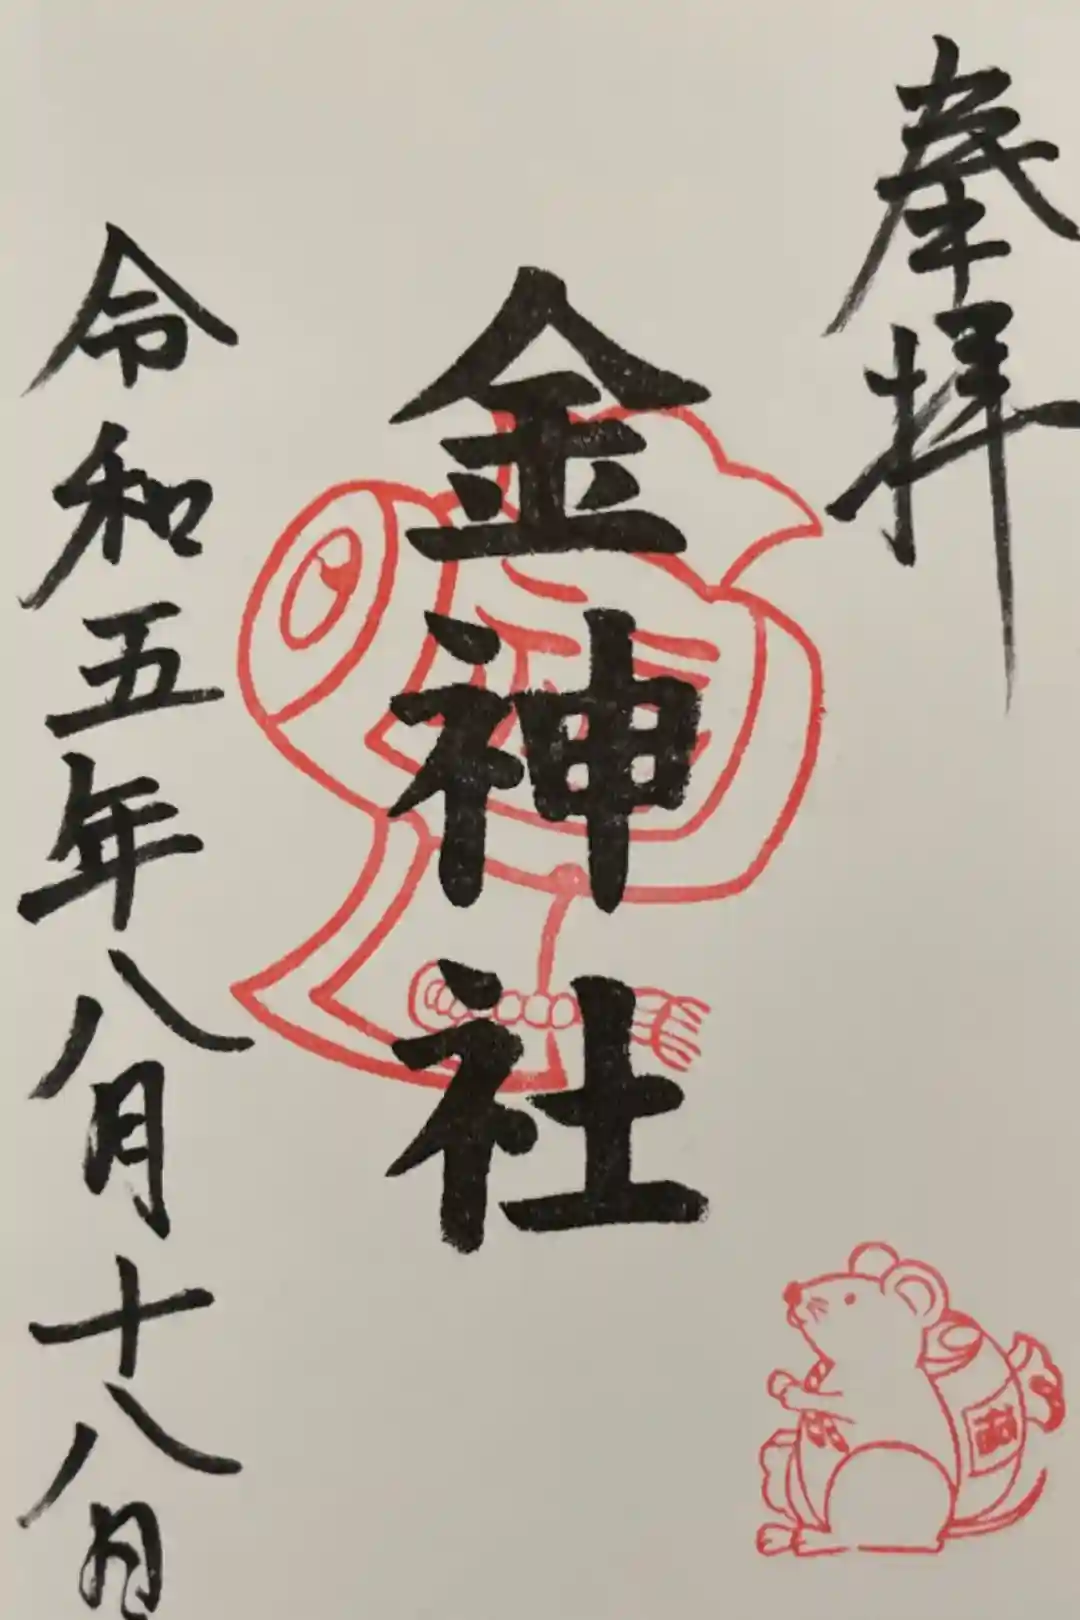 奉拝
金神社
令和五年八月十八日